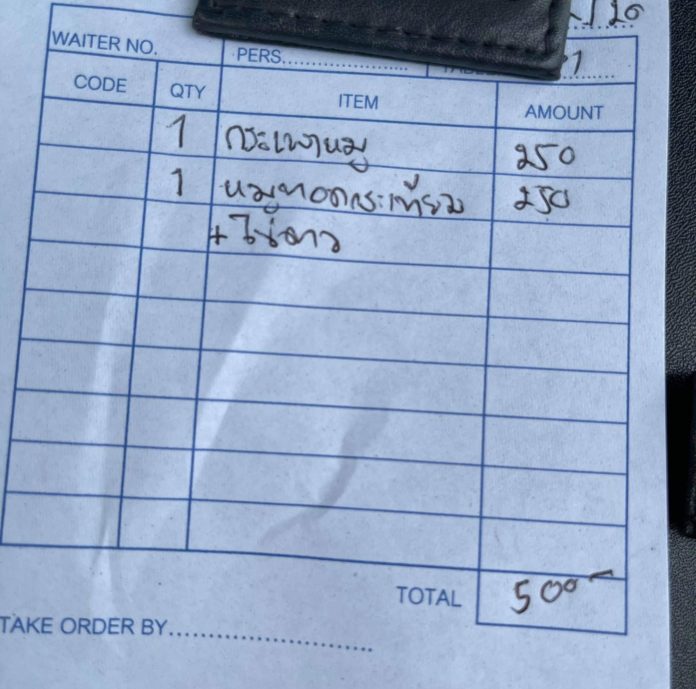 /20
WAITER NO. PERS........................ 1
CODE QTY ITEM AMOUNT
1 กระเพาหมู 250
1 หมูทอดกระเทียม 250
+ไข่ดาว
TOTAL 500-
TAKE ORDER BY.................................